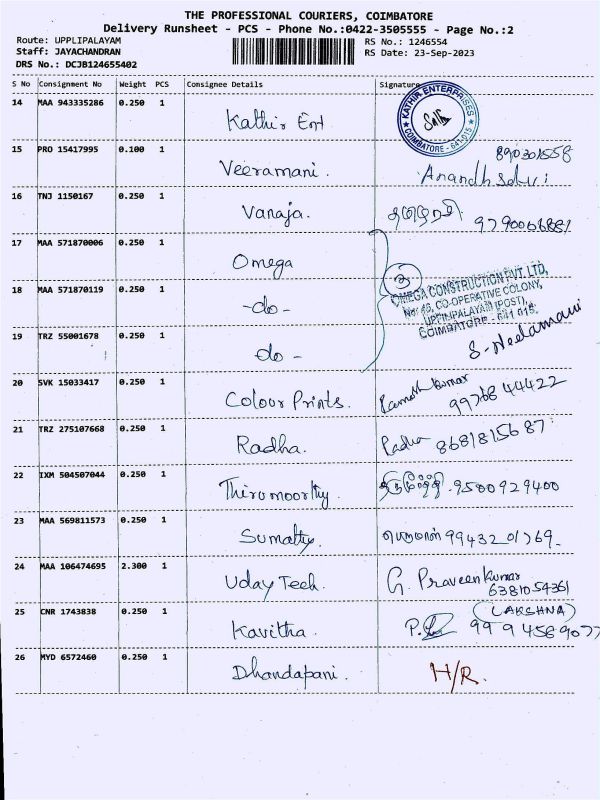 THE PROFESSIONAL COURIERS, COIMBATORE
Delivery Runsheet - PCS - Phone No.:0422-3505555 - Page No.:2
Route: UPPLIPALAYAM RS No.: 1246554
Staff: JAYACHANDRAN RS Date: 23-Sep-2023
DRS No.: DCJB124655402
S No Consignment No Weight PCS Consignee Details Signature
14 MAA 943335286 0.250 1 Kathir Ent KATHIR ENTERPRISES COIMBATORE - 641 015
15 PRO 15417995 0.100 1 Veeramani. 890301558
Anandh
16 TNJ 1150167 0.250 1 Vanaja. 9790066881
17 MAA 571870006 0.250 1 Omega 3
18 MAA 571870119 0.250 1 -do- OMEGA CONSTRUCTION PVT. LTD,
No: 46, CO-OPERATIVE COLONY,
UPPILIPALAYAM (POST),
COIMBATORE - 641 015.
19 TRZ 55001678 0.250 1 do - S. Neelamani
20 SVK 15033417 0.250 1 Colour Prints. Ramesh kumar
99768 44422
21 TRZ 275107668 0.250 1 Radha. Radha 8681815687
22 IXM 504507044 0.250 1 Thirumoorthy. 9500929400
23 MAA 569811573 0.250 1 Sumathy. 9943201769
24 MAA 106474695 2.300 1 Uday Tech. G. Praveen Kumar
6381054361
25 CNR 1743838 0.250 1 Kavitha. (LAKSHNA)
9994569077
26 MYD 6572460 0.250 1 Dhandapani. H/R.